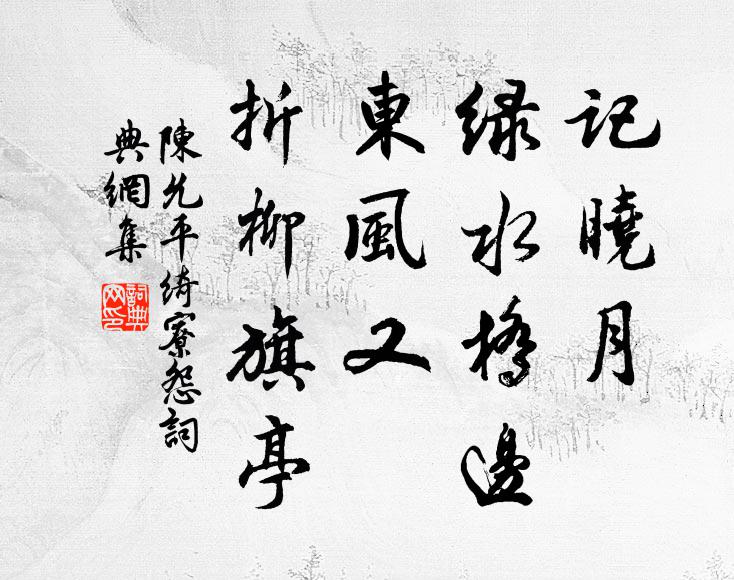 記曉月
緑水橋邊
東風又
折柳旗亭
陳允平綺寮怨詞
典網集
詞典網印